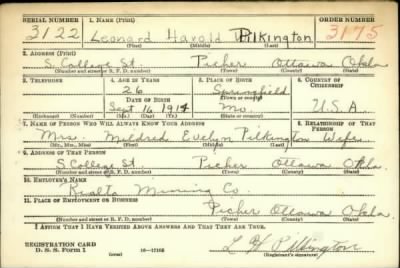 SERIAL NUMBER 1. NAME (Print) ORDER NUMBER
3122 Leonard Harold Pilkington 3175
(First) (Middle) (Last)
2. ADDRESS (Print)
S. College St. Picher Ottawa Okla
(Number and street or R. F. D. number) (Town) (County) (State)
3. TELEPHONE 4. AGE IN YEARS 5. PLACE OF BIRTH 6. COUNTRY OF CITIZENSHIP
26 Springfield
(Town or county)
DATE OF BIRTH
Sept. 16, 1914 Mo. U.S.A
(Exchange) (Number) (Mo.) (Day) (Yr.) (State or country)
7. NAME OF PERSON WHO WILL ALWAYS KNOW YOUR ADDRESS 8. RELATIONSHIP OF THAT PERSON
Mrs. Mildred Evelyn Pilkington Wife
(Mr., Mrs., Miss) (First) (Middle) (Last)
9. ADDRESS OF THAT PERSON
S. College St. Picher Ottawa Okla.
(Number and street or R. F. D. number) (Town) (County) (State)
10. EMPLOYER'S NAME
Rialto Mining Co.
11. PLACE OF EMPLOYMENT OR BUSINESS
Picher Ottawa Okla.
(Number and street or R. F. D. number) (Town) (County) (State)
I AFFIRM THAT I HAVE VERIFIED ABOVE ANSWERS AND THAT THEY ARE TRUE.
REGISTRATION CARD
D. S. S. Form 1 (over) 16-17105
L H Pilkington
(Registrant's signature)